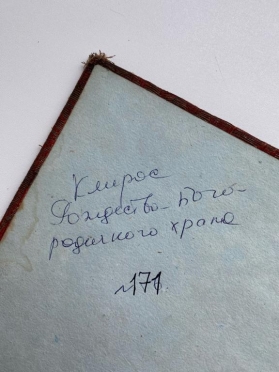 Клирос
Рождество-Бого-
родичного храма
№171